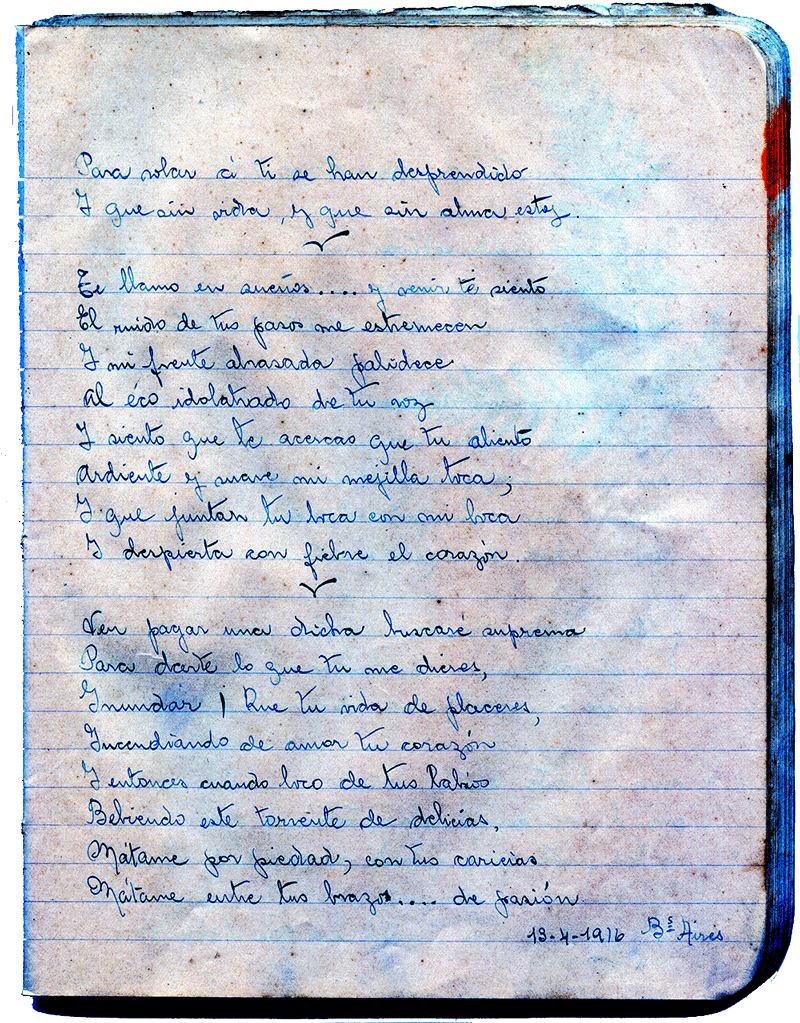 Para volar ci ti se han desprendido
Y que sin vida, y que sin alma estoy.
Te llamo en sueños.... y venir te siento
El ruido de tus pasos me estremecen
Y mi frente abrasada palidece
Al éco idolatrado de tu voz
Y siento que te acercas que tu aliento
Ardiente y suave mi mejilla toca,
Y que juntan tu boca con mi boca
Y despierta con fiebre el corazón.
Ven pagar una dicha buscaré suprema
Para darte lo que tu me dieres,
Inundar | Que tu vida de placeres,
Incendiando de amor tu corazón
Y entonces cuando loco de tus labios
Bebiendo este torrente de delicias,
Mátame por piedad, con tus caricias
Mátame entre tus brazos.... de pasión
13-4-1916 Bs Aires